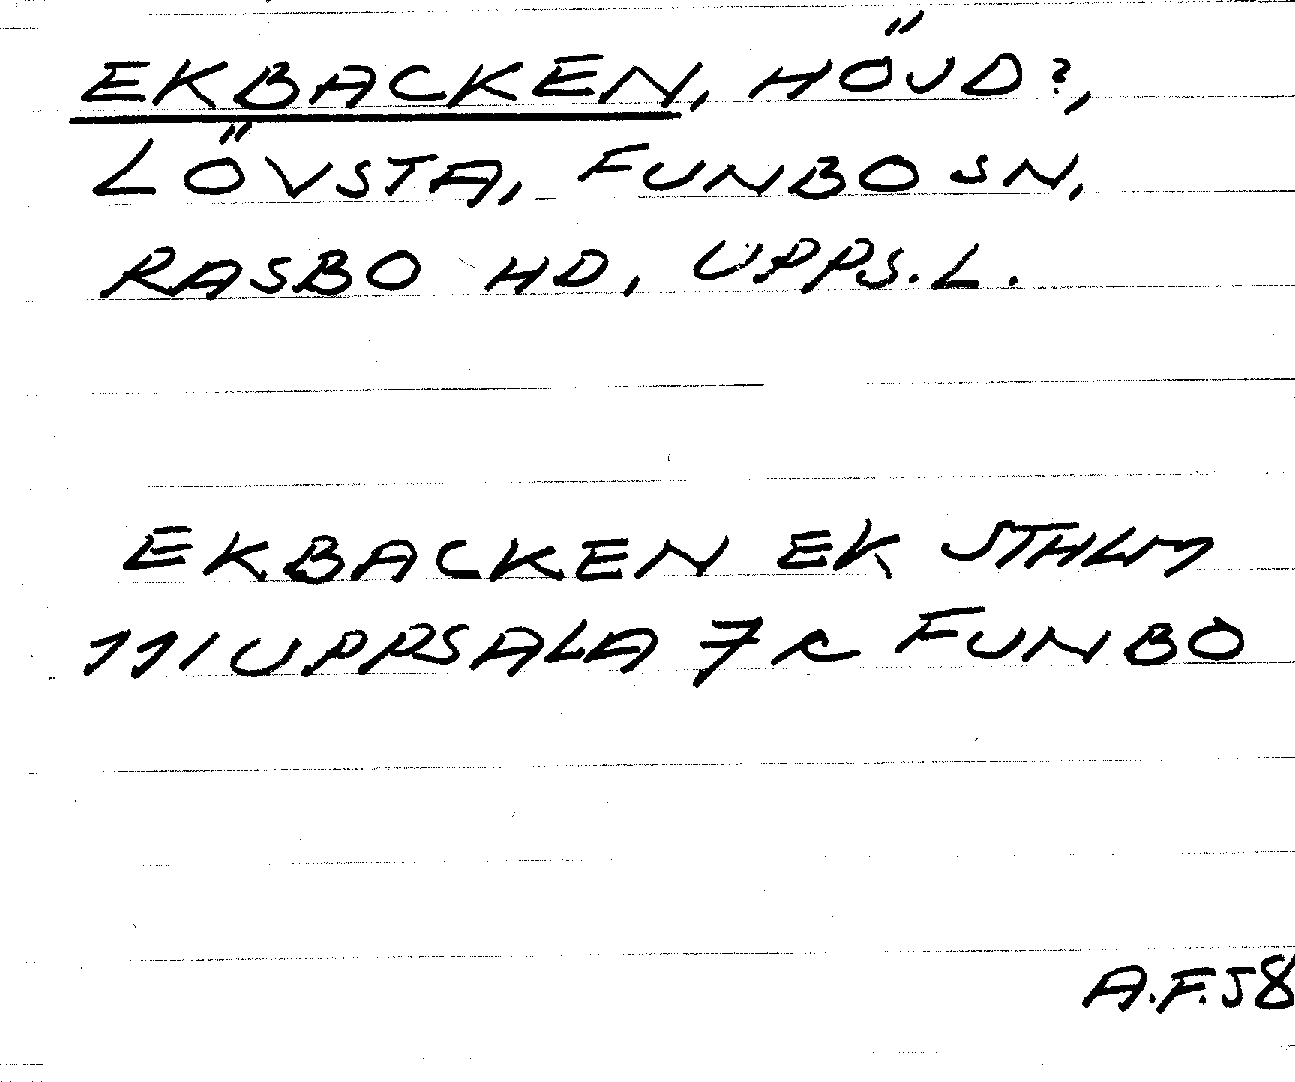 EKBACKEN, HÖJD?,
LÖVSTA, FUNBO SN,
RASBO HD, UPPS.L.
EKBACKEN EK STHLM
111 UPPSALA 7 c FUNBO
A.F.58